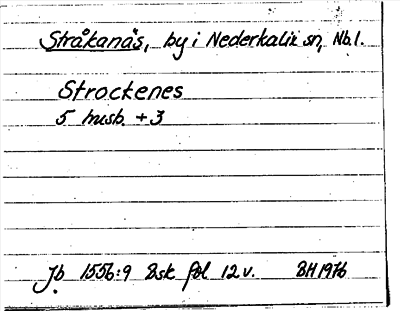 Stråkanäs, by i Nederkalix sn, Nb.l.
Strockenes
5 husb. + 3
Jb 1556:9 Bsk fol 12 v. BH 1976